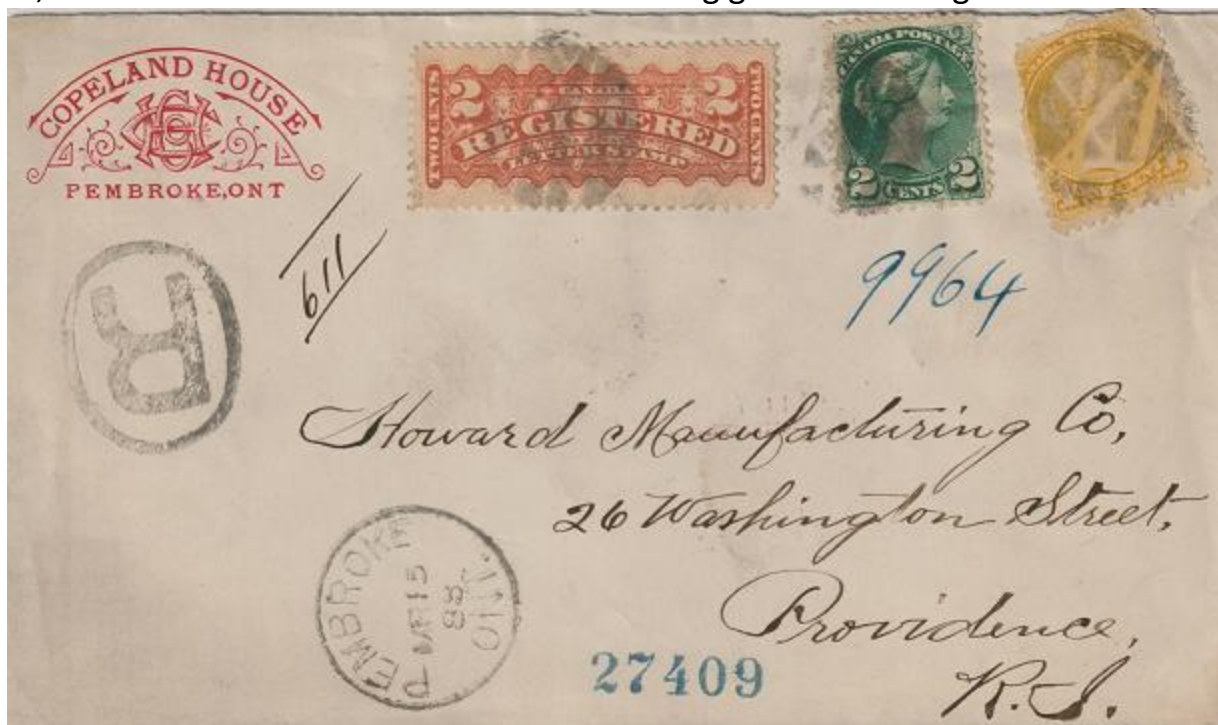 COPELAND HOUSE
PEMBROKE, ONT
2 REGISTERED 2
TWO CENTS
TWO CENTS
LETTER STAMP
CANADA POSTAGE
2 CENTS 2
611
9964
R
Howard Manufacturing Co,
26 Washington Street,
Providence,
R.I.
PEMBROKE
MR 15
88
ONT
27409